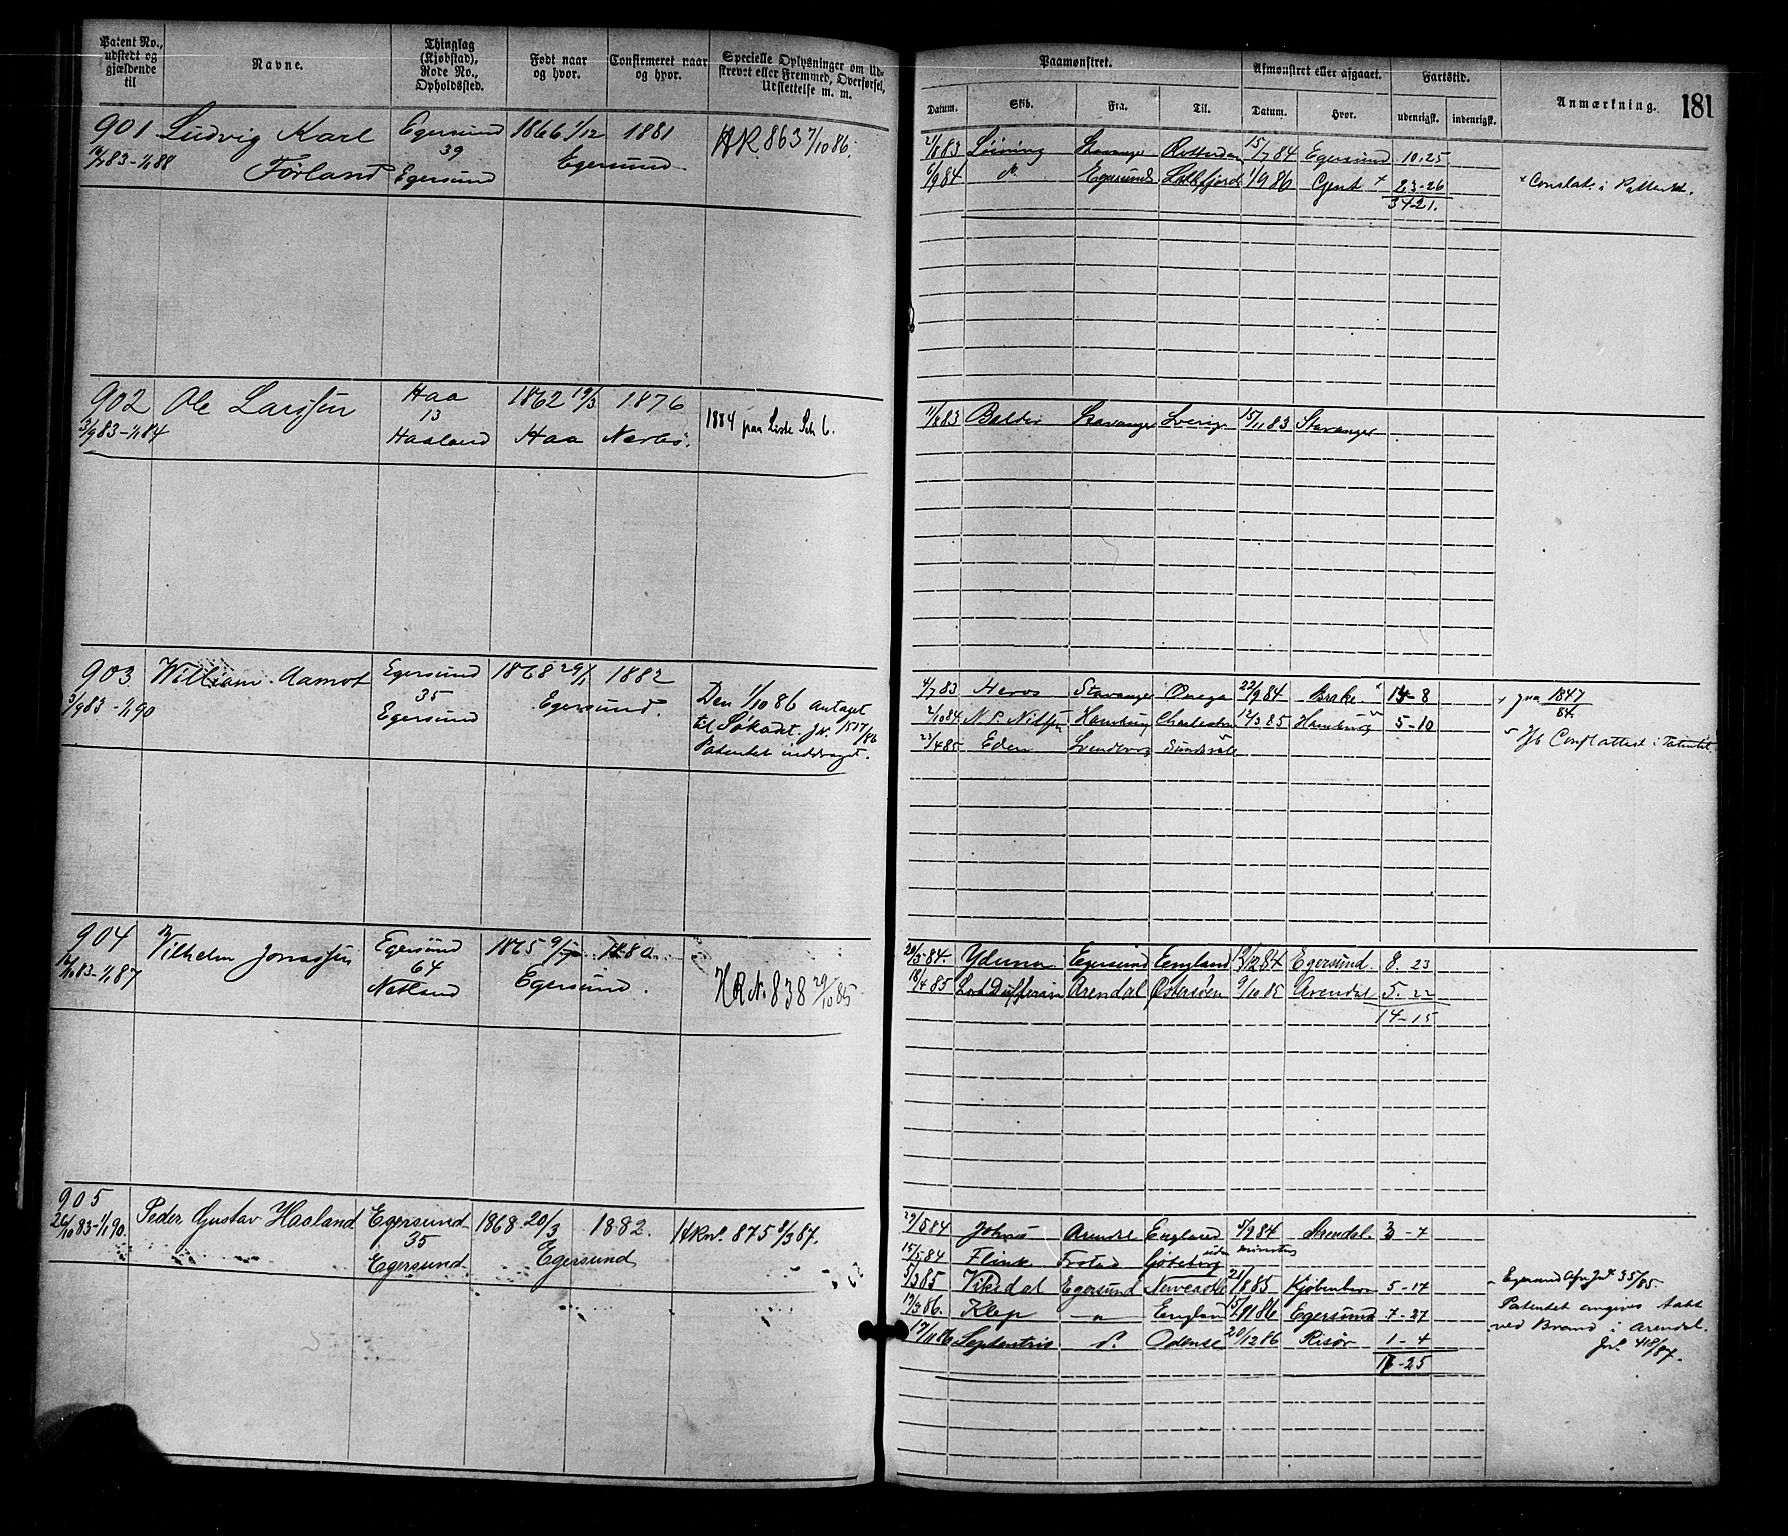 Patent No., udstedt og gjældende til
Navne.
Thinglag (Kjøbstad), Rode No., Opholdssted.
Født naar og hvor.
Confirmeret naar og hvor.
Specielle Oplysninger om Udskrevet eller Fremmed, Overførsel, Udslettelse m. m.
Paamønstret.
Datum.
Skib.
Fra.
Til.
Afmønstret eller afgaaet.
Datum.
Hvor.
Fartstid.
udenrigsk.
indenrigsk.
Anmærkning.
181
901 Ludvig Karl Egersund 1866 1/12 1881 HR. 863 7/10 86.
83-1/1 88 Førland 39 Egersund Egersund
83 Stavanger Rotterdam 15/7 84 Egersund 10.25
6/9 84 Egersund 1/9 86 Gent × 23-26
34-21.
902 Ole Larssen Haa 1862 19/3 1876 1884 paa Liste Sch 6.
3/9 83-1/1 84 13 Haaland Haa Nærbø.
83 Balder Stavanger Sverig 15/11 83 Stavanger
903 William Aamot Egersund 1868 29/1 1882
3/9 83-1/1 90 35 Egersund Egersund.
Den 1/10 86 antaget
til Søkadt. JN. 1517/86
Patentet inddraget.
4/7 83 Heros Stavanger Onega 22/9 84 Brake × 14-8
2/10 84 N. P. Nilssen Hamburg Charleston 12/3 85 Hamburg 5-10
23/4 85 Eden Svendborg Sundsvall
paa 1847/84
Conf attest i Patentet
904 Vilhelm Jonassen Egersund 1865 1880
83-1/1 87 64 Natland Egersund.
HR N. 838 29/10 85
20/3 84. Yduna Egersund England 84 Egersund. 8. 23
18/4 85 Lord Dufferin Arendal Østersøen 9/10 85 Arendal 5. 22
14-15
905 Peder Gustav Haaland Egersund 1868 20/3 1882. HRNo. 875 8/3 87.
26/10 83-1/1 90. 35 Egersund Egersund
29/5 84 Johns Arendal England 5/9 84 Arendal. 3-7
15/5 84 Flink Frstad Gøteborg uden mønstring
5/3 85 Viksdal Egersund Newcastle 21/8 85 Kjøbenhavn 5-17
19/3 86. Klep -"- England 86 Egersund 7-27
17/11 86 Septentrio do. Odense 20/12 86 Risør 1-4
17-25
Egersund 35/85.
Patentet angives tabt
ved Brand i Arendal.
Jnl. 418/87.